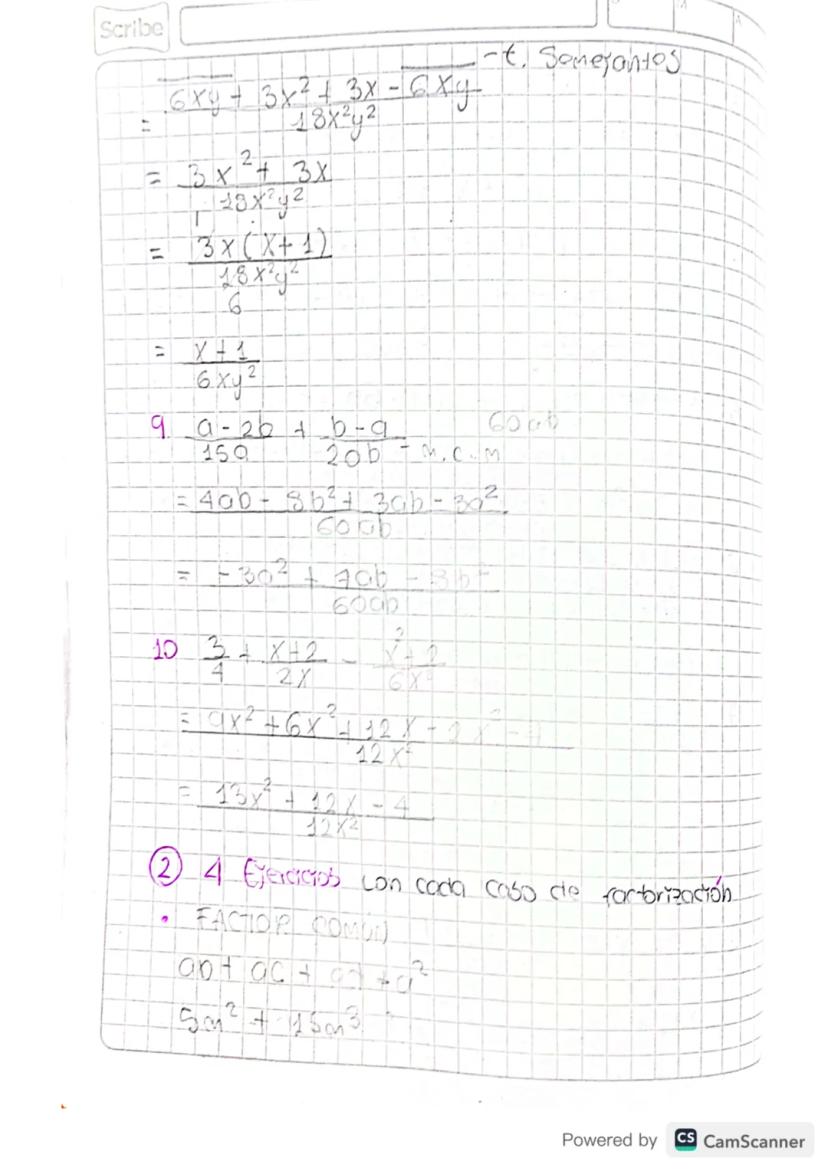 Scribe
- t. Semejantes
= 6xy + 3x² + 3x - 6xy / 18x²y²
= 3x² + 3x / 18x²y²
= 3x(x+1) / 18x²y²
6
= x+1 / 6xy²
9. a-2b / 15a + b-a / 20b - m.c.m 60ab
= 4ab - 8b² + 3ab - 3a² / 60ab
= -3a² + 7ab - 8b² / 60ab
10 3/4 + x+2 / 2x - x²+2 / 6x²
= 9x² + 6x² + 12x - 2x² - 4 / 12x²
= 13x² + 12x - 4 / 12x²
② 4 Ejercicios con cada caso de factorización
• FACTOR COMÚN
ab + ac + ad + a²
5m² + 15m³
Powered by CS CamScanner